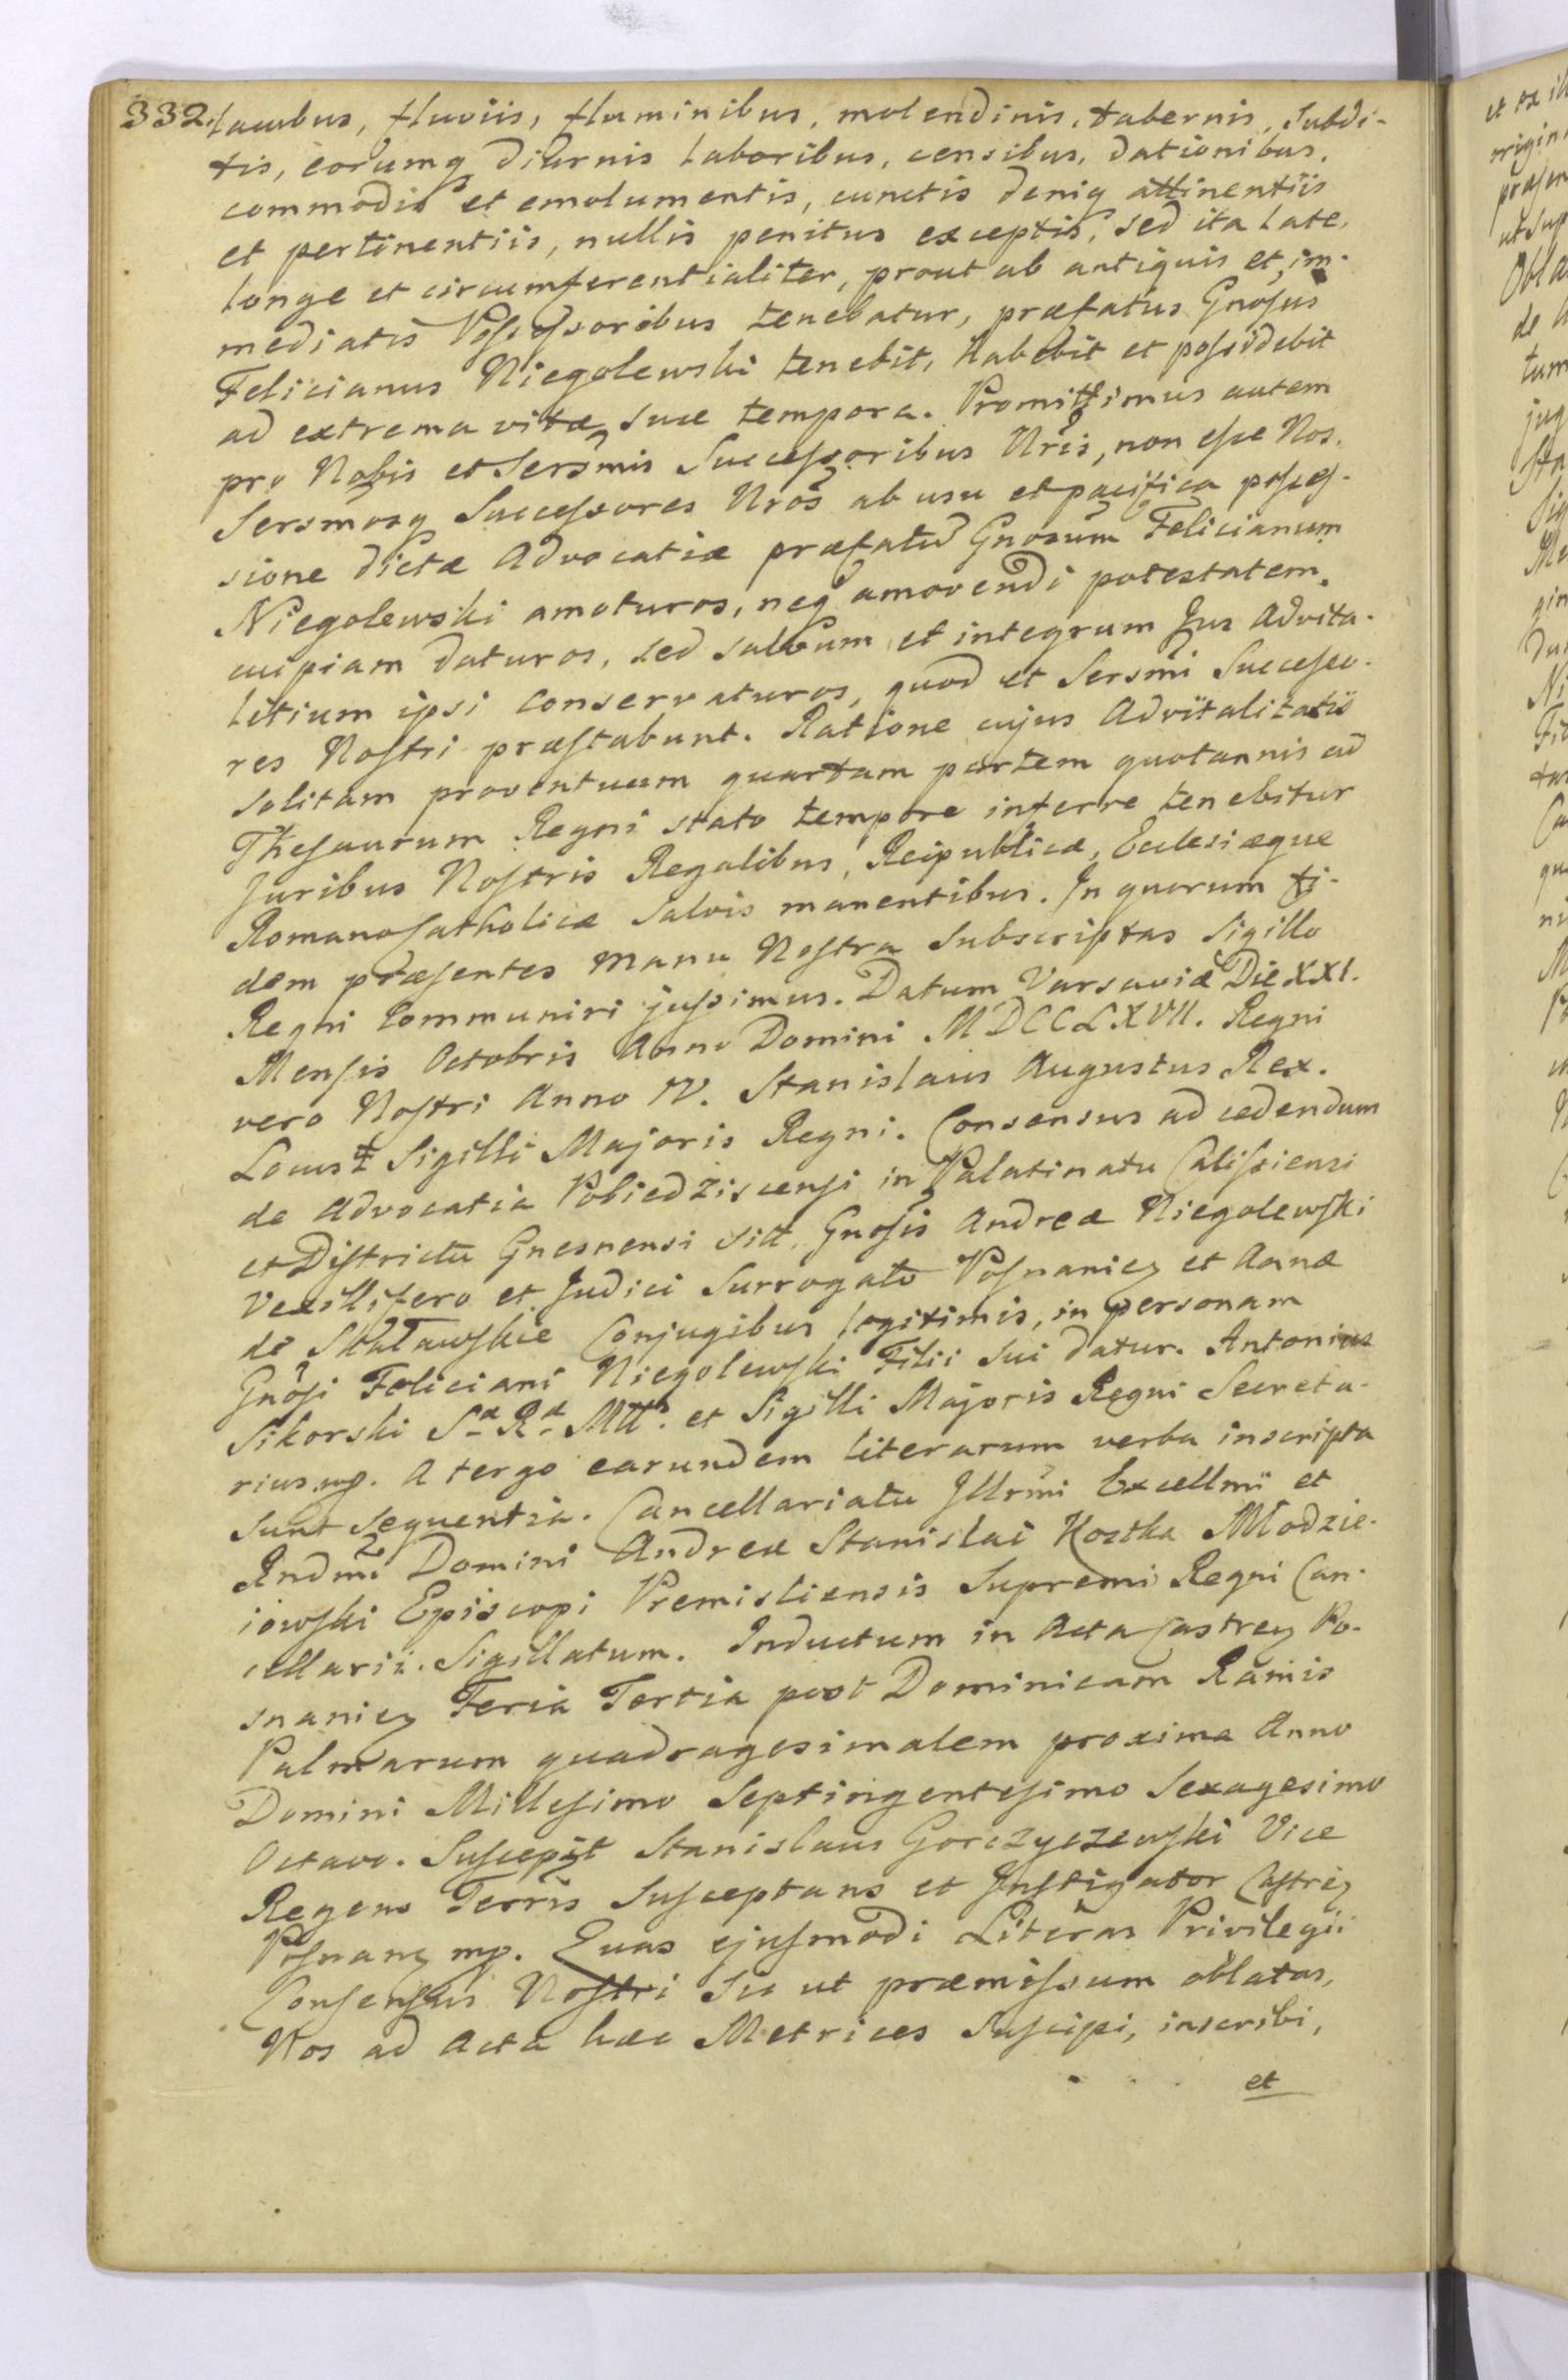 332. lacubus, fluviis, fluminibus, molendinis, tabernis, Subdi-
tis, eorumq diurnis laboribus, censibus, dationibus,
commodis et emolumentis, cunctis deniq attinentiis
et pertinentiis, nullis penitus exceptis, sed ita late,
longe et circumferentialiter, prout ab antiquis et im-
mediatis Poſseſsoribus tenebatur, præfatus Gnoſus
Felicianus Niegolewski tenebit, habebit et poſsidebit
ad extrema vitæ suæ tempora. Promittimus autem
pro Nobis et Sersmis Succeſsoribus Nris, non eſse Nos,
Sersmosq Succeſsores Nros ab usu et pacifica poſseſ-
sione dictæ Advocatiæ præfatũ Gnosum Felicianum
Niegolewski amoturos, neq amovendi potestatem
cuipiam daturos, sed salvum et integrum Jus Advita-
litium ipsi conservaturos, quod et Sersmi Succeſso-
res Noſtri præſtabunt. Ratione cujus Advitalitatis
solitam proventuum quartam partem quotannis ad
Theſaurum Regni stato tempore inferre tenebitur
Juribus Noſtris Regalibus, Reipublicæ, Ecclesiæque
Romano Catholicæ salvis manentibus. In quorum fi-
dem præſentes manu Noſtra Subscriptas Sigillo
Regni Communiri juſsimus. Datum Varsaviæ Die XXI.
Menſis Octobris Anno Domini MDCCLXVII. Regni
vero Noſtri Anno IV. Stanislaus Augustus Rex.
Locus ‡ Sigilli Majoris Regni. Consensus ad cedendum
de Advocatia Pobiedziscenſi in Palatinatu Caliſsiensi
et Diſtrictu Gnesnensi sitt. Gnoſis Andreæ Niegolewſki
Vexillifero et Judici Surrogato Poſnanieɳ et Annæ
de Skaławſkie Conjugibus legitimis, in personam
Gnoſi Feliciani Niegolewſki Filii sui datur. Antonius
Sikorski Sæ Ræ Mttis et Sigilli Majoris Regni Secreta-
rius mp. A tergo earundem literarum verba inscripta
sunt sequentia. Cancellariatu Jllrmi Excellmi et
Rndmi Domini Andreæ Stanislai Kostka Młodzie-
iowſki Episcopi Premisliensis Supremi Regni Can-
cellarii. Sigillatum. Inductum in Acta Castreɳ Po-
snanieɳ Feria Tertia post Dominicam Ramis
Palmarum quadragesimalem proxima Anno
Domini Milleſimo Septingenteſimo Sexagesimo
Octavo. Suſcepit Stanislaus Gorczyczewſki Vice
Regens Terris Suſceptans et Inſtigator Caſtreɳ
Poſnanɳ mp. Quas ejuſmodi Literas Privilegii
Conſenſus Noſtri sic ut præmiſsum oblatas,
Nos ad Acta hæc Metrices Suſcipi, inscribi,
et